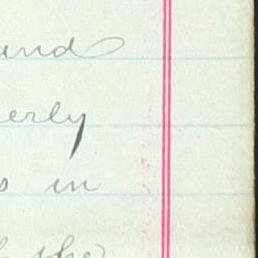 and
erly
s in
the